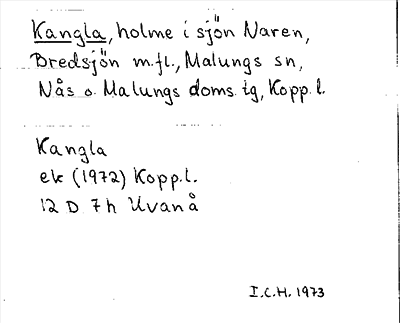 Kangla, holme i sjön Naren,
Bredsjön m.fl., Malungs sn,
Nås o. Malungs doms. tg, Kopp. l.
Kangla
ek (1972) Kopp.l.
12 D 7h Uvanå
I.C.H. 1973